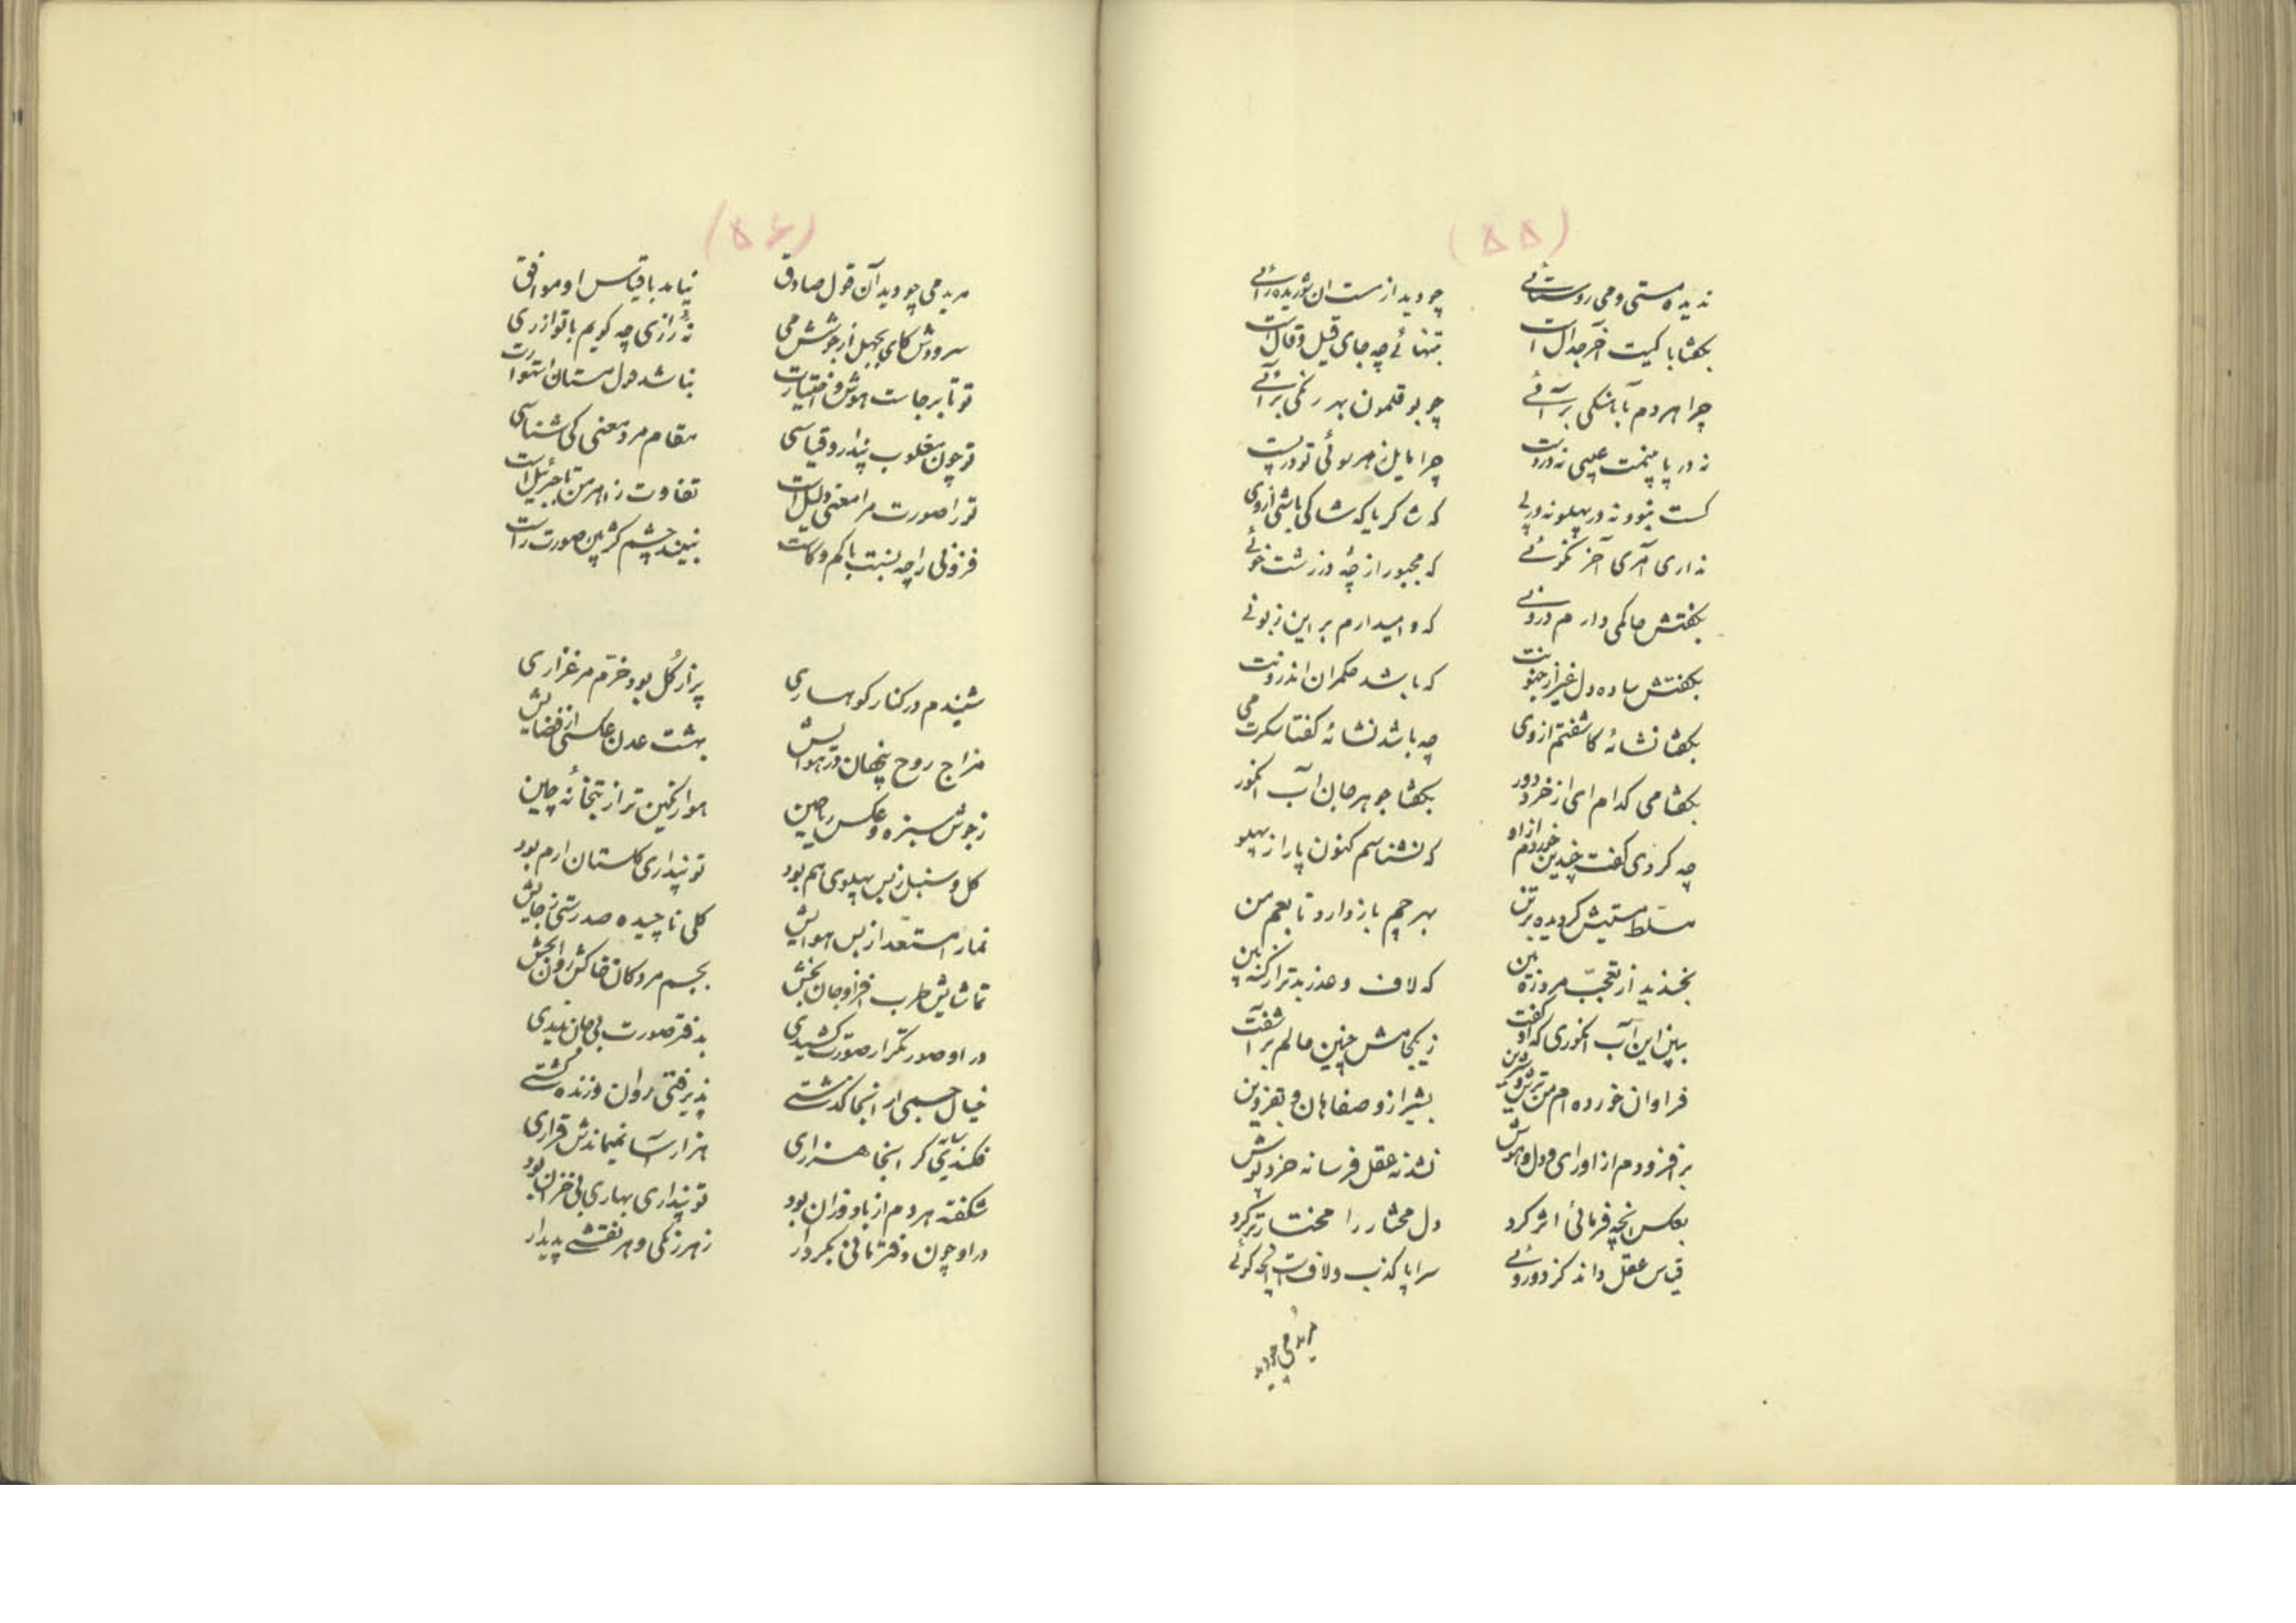 (۵۵)
ندیده مستی و می روستائی
چو دید از مست ان شوریده رائی
بگفتا با کیت آخر جدال است
بتنهائی چه جای قیل و قال است
چرا هردم بآهنگی برآئی
چو بوقلمون بهر رنگی برآئی
نه در پا بینمت عیبی نه در دست
چرا مایل ز هر سوئی تو در پست
کست نبود نه در پهلو نه در پی
که شاکر یا که شاکی باشی از وی
نداری آمری آخر نکوئی
که مجبور از چهٔ در زشت خوئی
بگفتش حاکمی دارم درونی
که وامیدارم بر این زبونی
بگفتش ساده دل غیر از جنونت
که باشد حکمران اندرونت
بگفتا نشائهٔ کاشفتم از وی
چه باشد نشائه گفتا سکرت می
بگفتا می کدام ای از خرد دور
بگفتا جوهر جان آب انگور
چه کردی گفت چندین خوردم از او
که نشناسم کنون پا را ز پهلو
مسلّط مستیش گردیده بر تن
بهر چم بازدارد تابعم من
بخندید از تعجّب مرد زه بین
که لاف و هذر بدتر از کنه بین
ببین این آب انگوری که او گفت
ز یکجامش چنین حالم برآشفت
فراوان خورده ام من ترش و شیرین
بشیراز و صفاهان و بقزوین
برافزودم از او رای و دل و هوش
نشد نه عقل فرسا نه خرد پوش
بعکس انچه فرمائی اثر کرد
دل مختار را مختارتر کرد
قیاس عقل داند کز دوروئی
سراپا کذب و لاف است انچه گوئی
مریدمی چو دید
(۵۶)
مریدمی چو دید آن قول صادق
نیامد با قیاس او موافق
سرودش کای بجهل از جوشش می
نهٔ رازی چه گویم با تو از ری
تو تا برجاست هوش و اختیارت
نباشد حول مستان استوارت
تو چون مغلوب پندار و قیاسی
مقام مرد معنی کی شناسی
تو را صورت مرا معنی دلیل است
تفاوت ز اهرمن تا جبرئیل است
فزونی را چه نسبت با کم و کاست
نبیند چشم کژ بین صورت راست
شنیدم در کنار کوهساری
پر از گل بود خرّم مرغزاری
مزاج روح پنهان در هوایش
بهشت عدن عکسی از فضایش
ز جوش سبزه و عکس ریاحین
هوا رنگین تر از بتخانهٔ چین
گل و سنبل ز بس پهلوی هم بود
تو پنداری گلستان ارم بود
نما را مستعّد از بس هوایش
گلی ناچیده صد رستی ز جایش
تماشایش طرب افزا و جان بخش
بجسم مردگان خاکش روان بخش
در او صورتگر ار صورت کشیدی
بدفتر صورت بی جان ندیدی
خیال جسمی ار انجا گذشتی
پذیرفتی روان و زنده گشتی
فکندی گر انجا هزاری
هزار آسا نمیماندش قراری
شکفته هر دم از باد وزان بود
تو پنداری بهاری بی خزان بود
در او چون دفتر مانی بکردار
ز هر رنگی و هر نقشی پدیدار